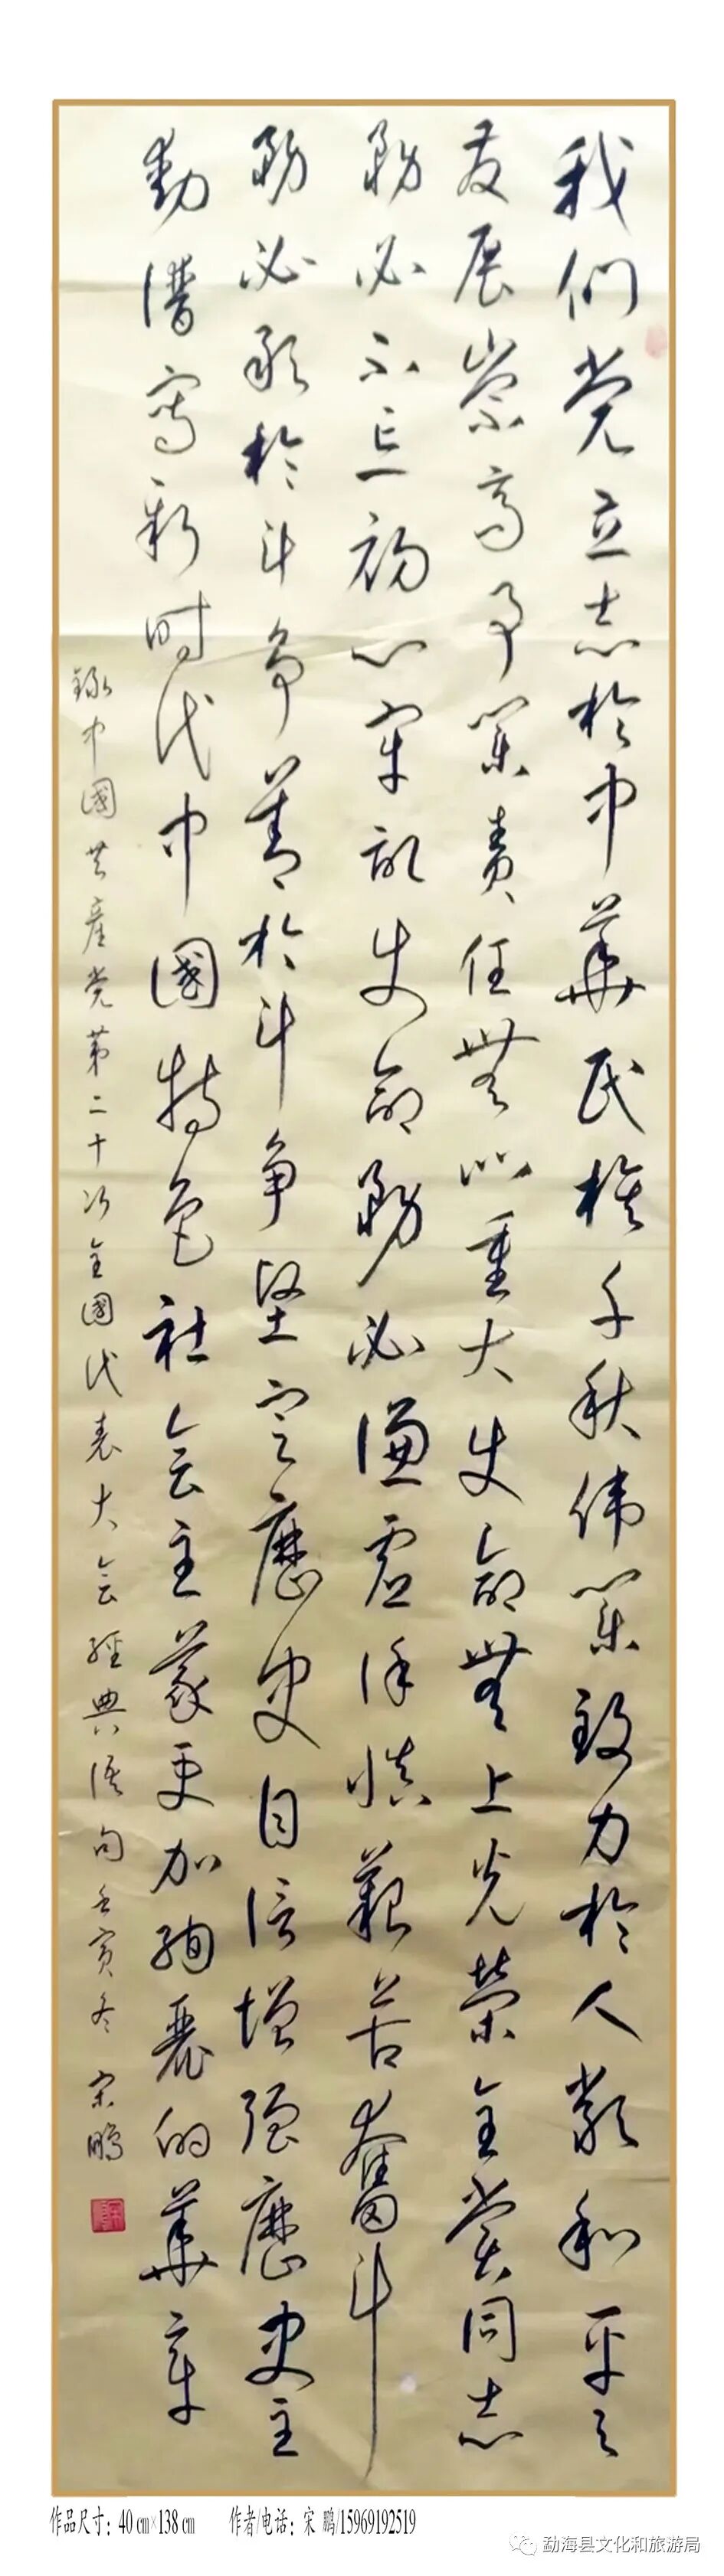 我们党立志於中華民族千秋伟業致力於人類和平与
发展崇高事業责任無比重大使命無上光荣全党同志
務必不忘初心牢記使命務必谦虚谨慎艱苦奮斗
務必敢於斗争善於斗争坚定歷史自信增强歷史主
動谱寫新时代中國特色社会主義更加绚麗的華章
録中國共産党第二十次全國代表大会經典语句壬寅冬 宋鵬
作品尺寸：40㎝×138㎝ 作者/电话：宋 鹏/15969192519
勐海县文化和旅游局